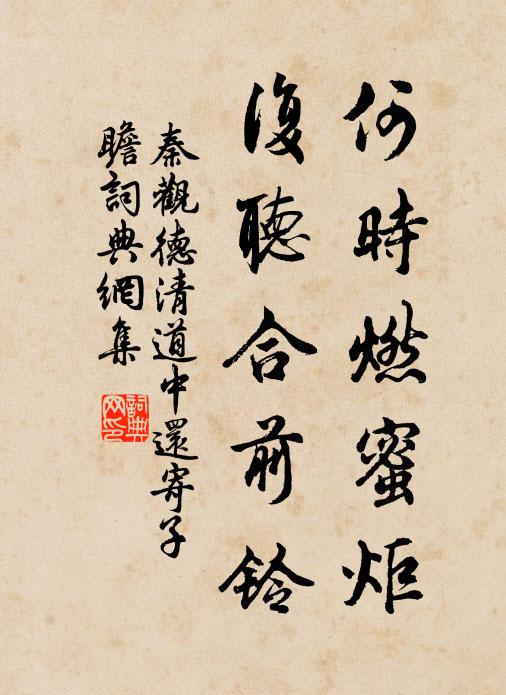 何時燃蜜炬
復聽合前鈴
秦觀德清道中還寄子
瞻詞典網集
詞典
网印